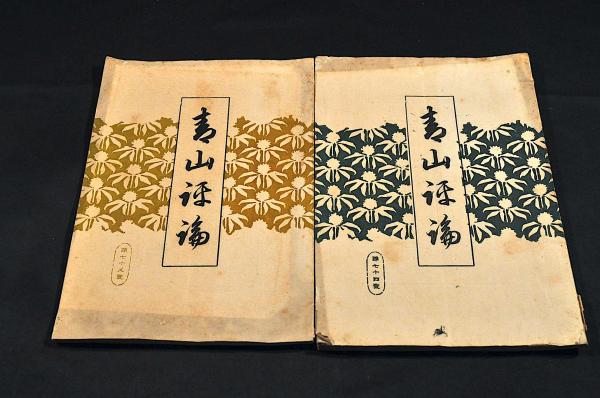 青山評論
第七十八號
青山評論
第七十四號